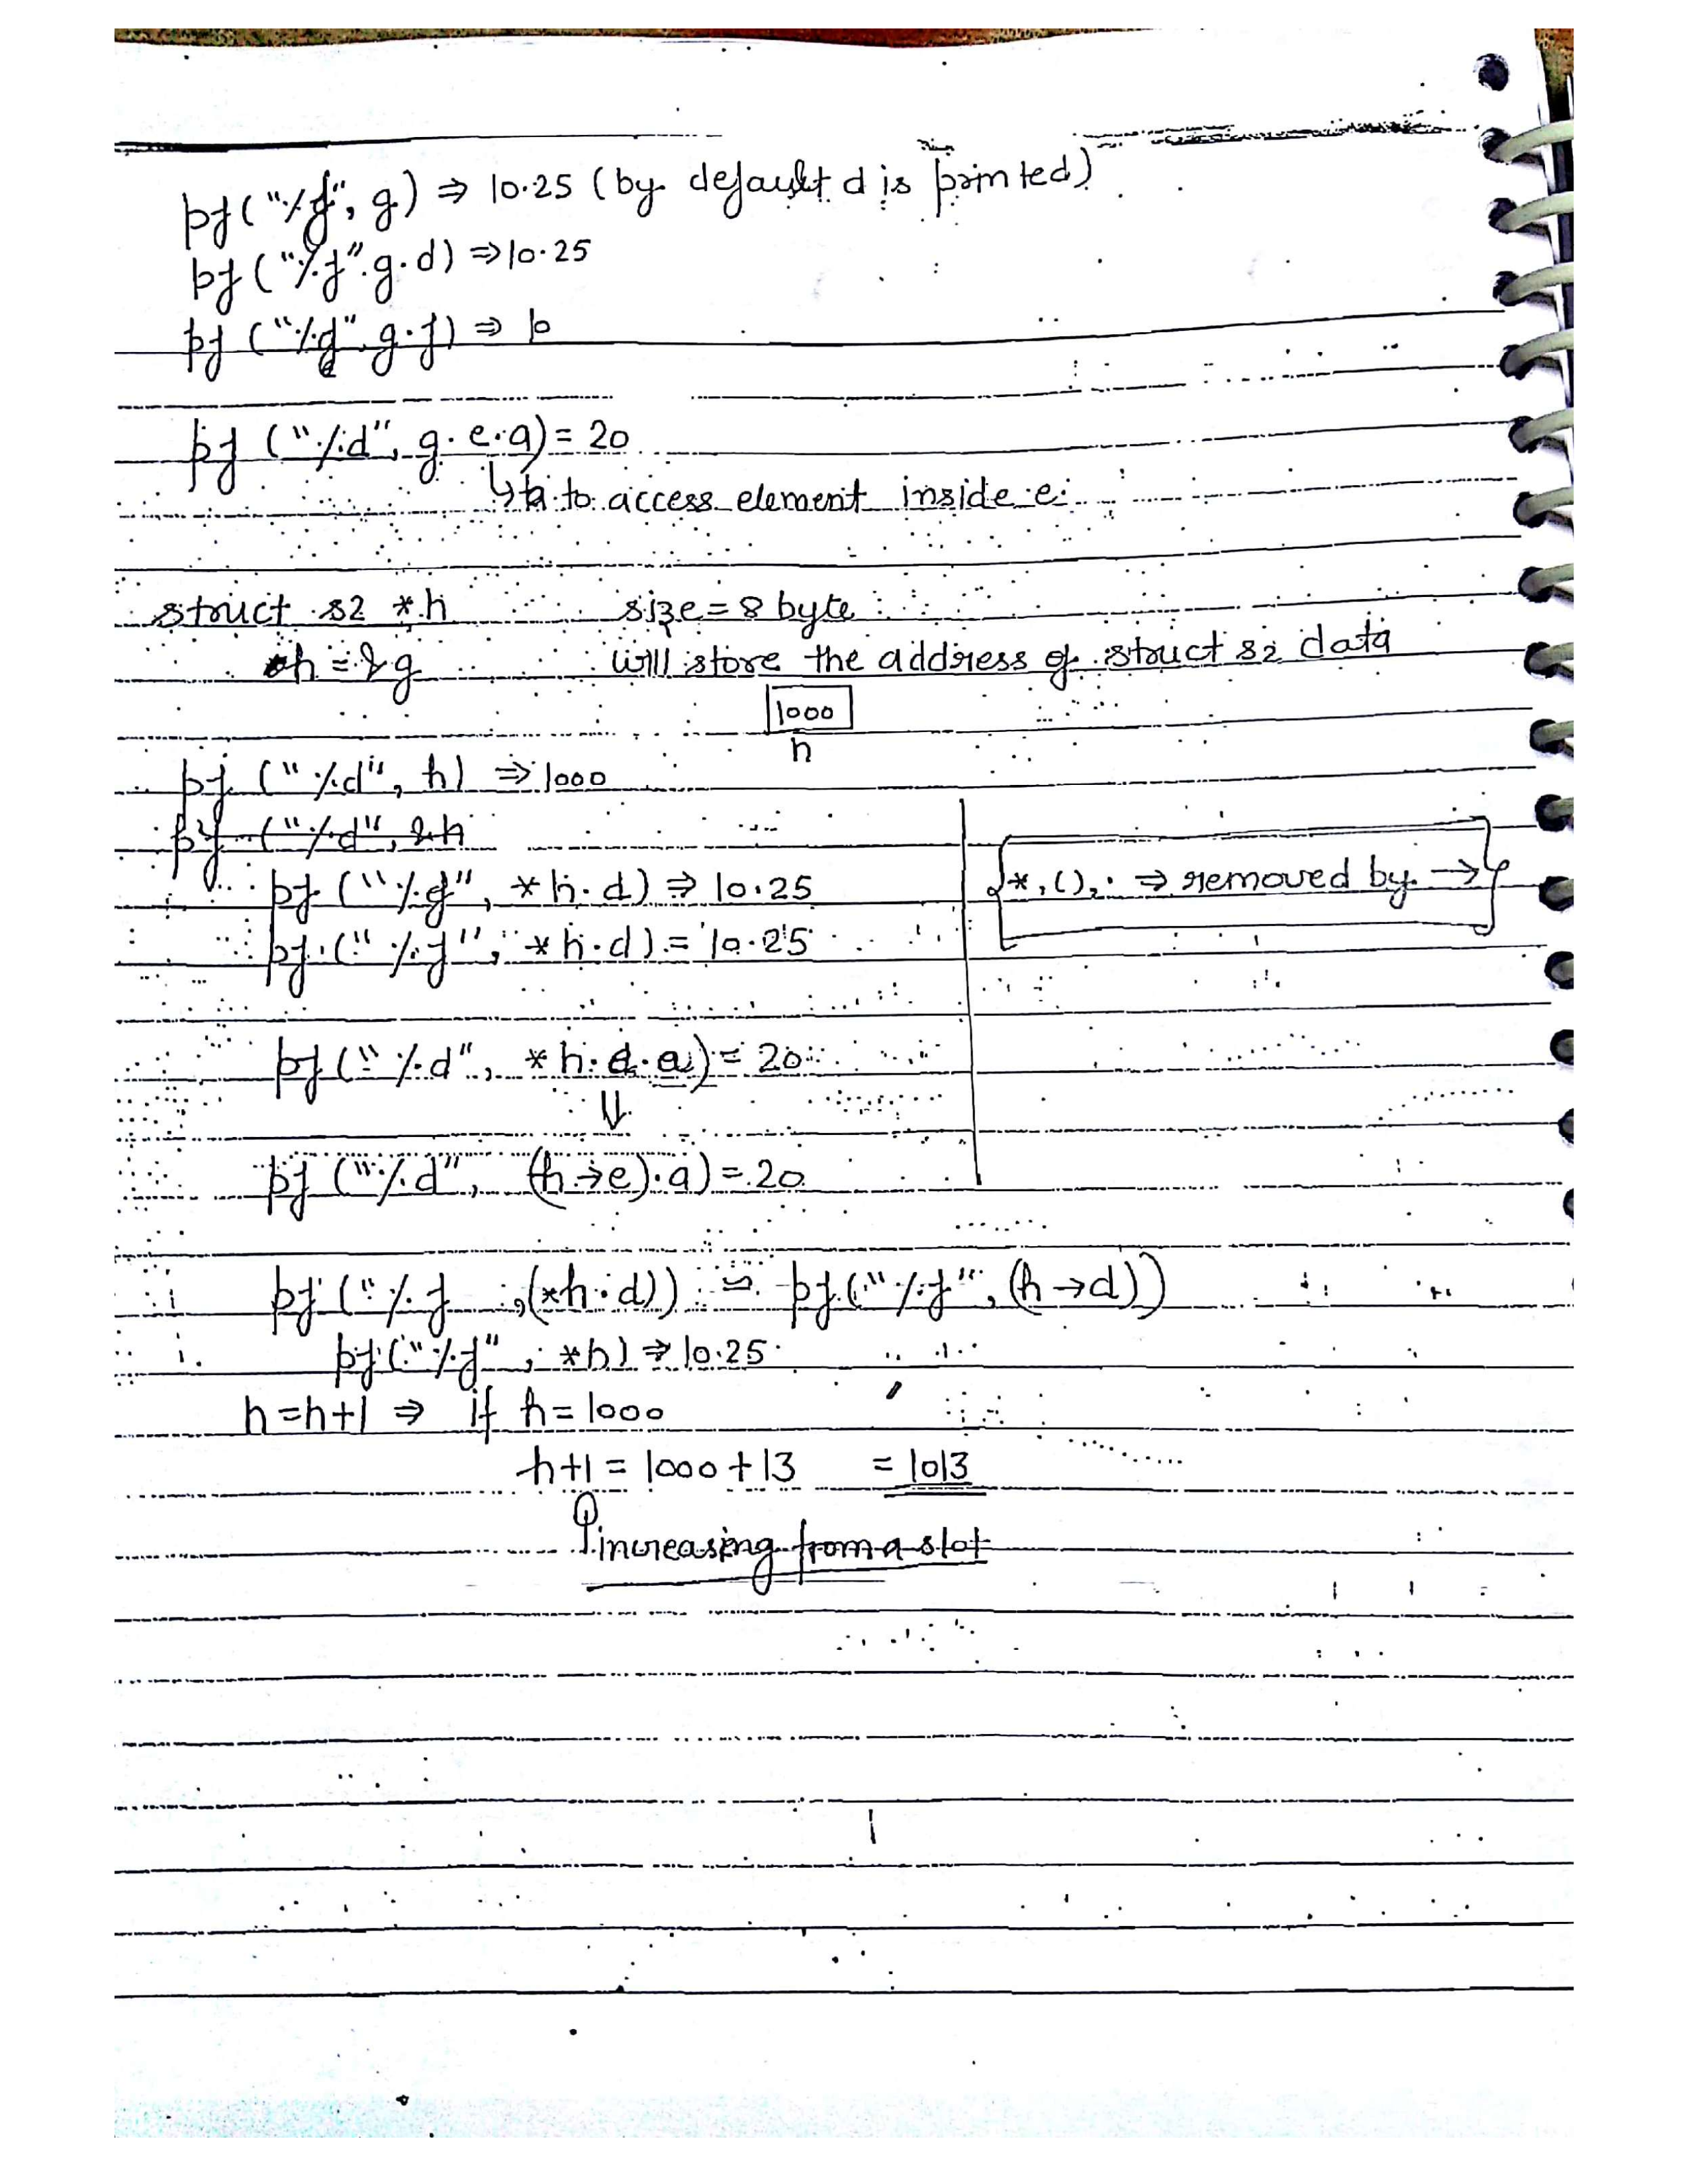 pf("%f", g) ⇒ 10.25 (by default d is printed)
pf("%f".g.d) ⇒ 10.25
pf ("%d" g.f) ⇒ 10
pf ("%d", g.e.a) = 20
↳ to access element inside e.
struct s2 *h size = 8 byte
h = &g will store the address of struct s2 data
1000
h
pf ("%d", h) ⇒ 1000
pf ("%d", &h
pf ("%f", *h.d) ⇒ 10.25
{*, (), . ⇒ removed by →}
pf ("%f", *h.d) = 10.25
pf ("%d", *h.e.a) = 20
⇓
pf ("%d", (h→e).a) = 20
pf ("%f ,(*h.d)) = pf("%f", (h→d))
pf("%f", *h) ⇒ 10.25
h=h+1 ⇒ if h = 1000
h+1 = 1000 + 13 = 1013
increasing from a slot